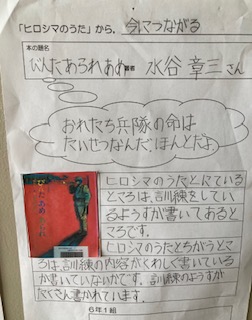 「ヒロシマのうた」から、今につながる
本の題名
じんたあられあめ 著者 水谷 章三 さん
おれたち兵隊の命は
たいせつなんだ、ほんとだよ。
ヒロシマのうたとにている
ところは、訓練をしてい
るようすが書いてあると
ころです。
ヒロシマのうたとちがうとこ
ろは、訓練の内容がくわしく書いている
か書いていないかです。訓練のようすが
たくさん書かれています。
6年1組